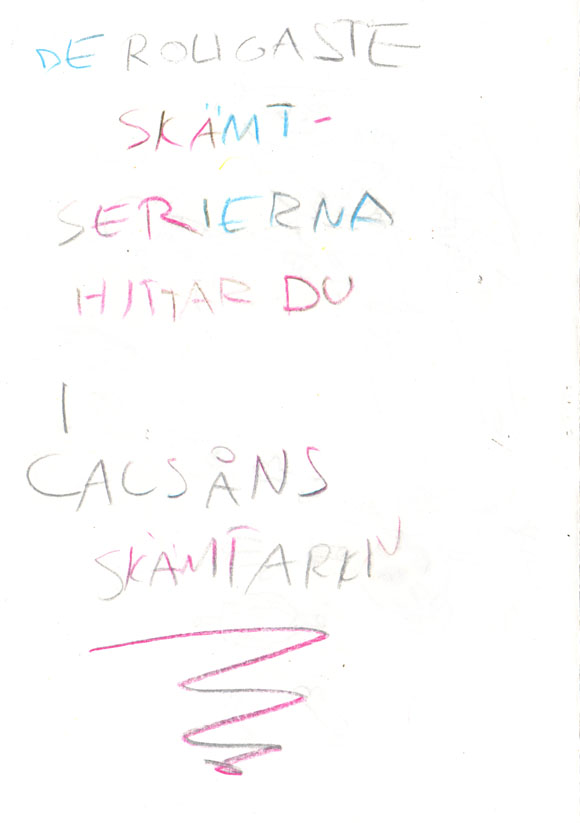 DE ROLIGASTE
SKÄMT-
SERIERNA
HITTAR DU
I
CACSÅNS
SKÄMTARKIV